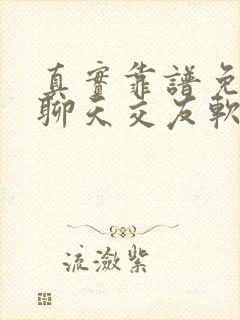 真實靠譜免
聊天交友軟
流瀲紫